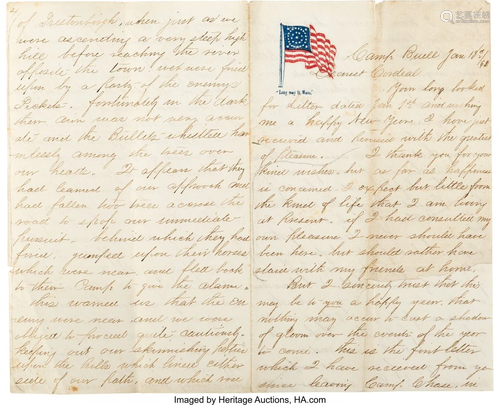 of Greetenburgh, when just as we
were ascending a very steep high
hill before reaching the river
opposite the town, we were fired
upon by a party of the enemy's
Pickets. Fortunately in the dark
their aim was not very accur
ate and the Bullets whistled har
mlessly among the trees over
our heads. It appears that they
had learned of our approach and
had fallen two trees across the
road to stop our immediate
pursuit. behind which they had
fired. jumped upon their horses
which were near and fled back
to their Camp to give the alarm.
this warned us that the En
emy were near and we were
obliged to proceed quite cautiously.
keeping out our skirmishing parties
upon the hills which lined either
side of our path, and which rose
"Long may it Wave."
Camp Buell Jan 18th/62
Your long looked
for letter dated Jan 1st and wishing
me a happy New Year I have just
received and perused with the greatest
of pleasure. I thank you for your
kind wishes, but as far as happiness
is concerned I expect but little from
the kind of life that I am living
at present. if I had consulted my
own pleasure I never should have
been here, but should rather have
staid with my friends at home.
But I sincerely trust that this
may be to you a happy year. that
nothing may occur to cast a shadow
of gloom over the events of the year
to come. this is the first letter
which I have received from you
since leaving Camp Chase. in
Imaged by Heritage Auctions, HA.com